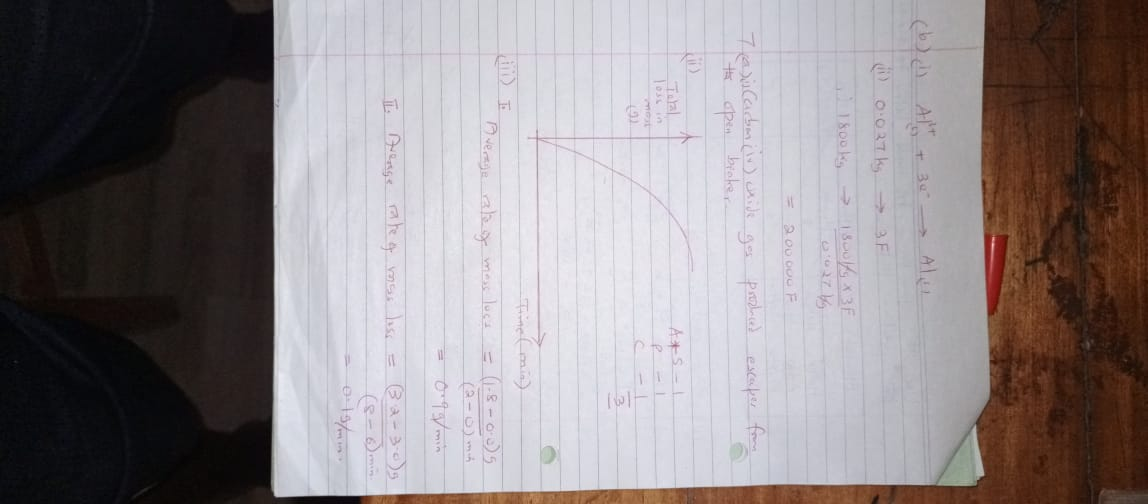 (b) (i) Al³⁺(l) + 3e⁻ → Al(l)
(ii) 0.027kg → 3F
∴ 1800kg → 1800kg x 3F
0.027kg
= 200000F
7(a)(i) Carbon(iv) oxide gas produced escapes from
the open beaker.
(ii)
Total
loss in
mass
(g)
A*S - 1
P - 1
C - 1
3
Time (min)
(iii) I. Average rate of mass loss = (1.8 - 0.0)g
(2 - 0) min
= 0.9g/min
II. Average rate of mass loss = (3.2 - 3.0)g
(8 - 6) min
= 0.1g/min.